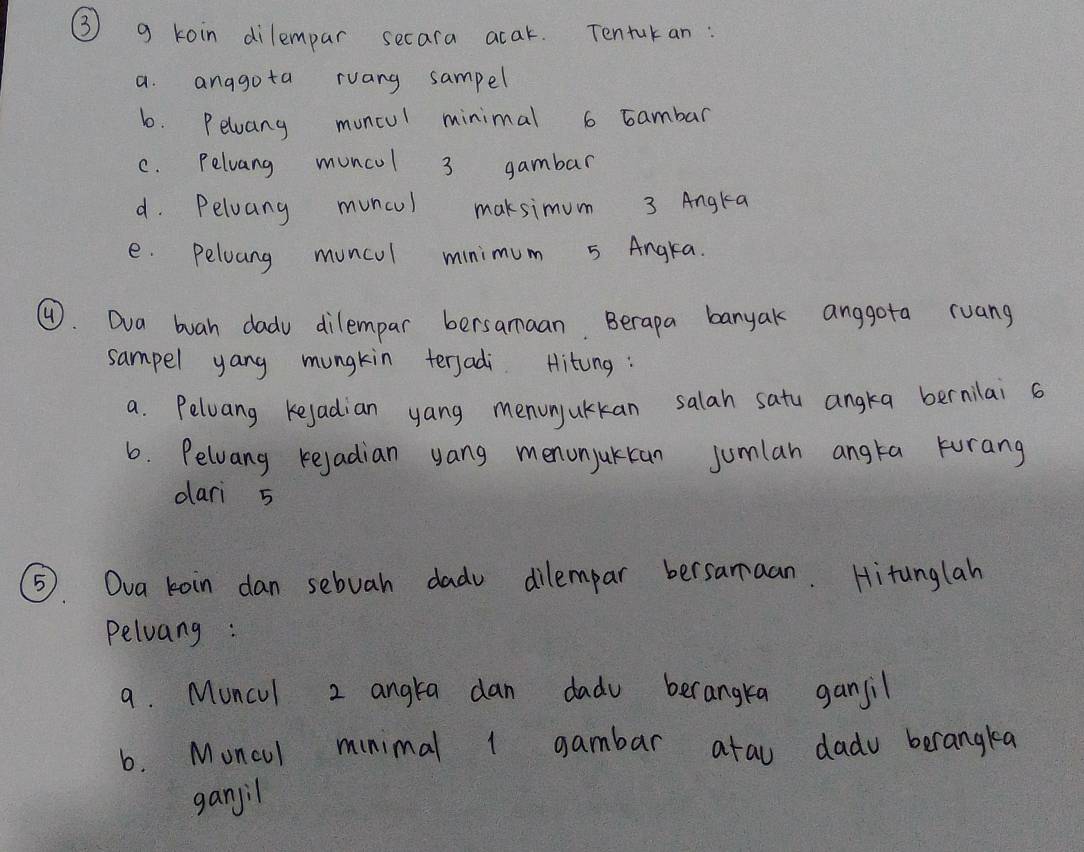 ③ 9 koin dilempar secara acak. Tentukan :
a. anggota ruang sampel
b. Peluang muncul minimal 6 Gambar
c. Peluang muncul 3 gambar
d. Peluang muncul maksimum 3 Angka
e. Peluang muncul minimum 5 Angka.
④. Dua buah dadu dilempar bersamaan. Berapa banyak anggota ruang
sampel yang mungkin terjadi. Hitung :
a. Peluang kejadian yang menunjukkan salah satu angka bernilai 6
b. Peluang kejadian yang menunjukkan jumlah angka kurang
dari 5
⑤. Dua koin dan sebuah dadu dilempar bersamaan. Hitunglah
Peluang :
a. Muncul 2 angka dan dadu berangka ganjil
b. Muncul minimal 1 gambar atau dadu berangka
ganjil